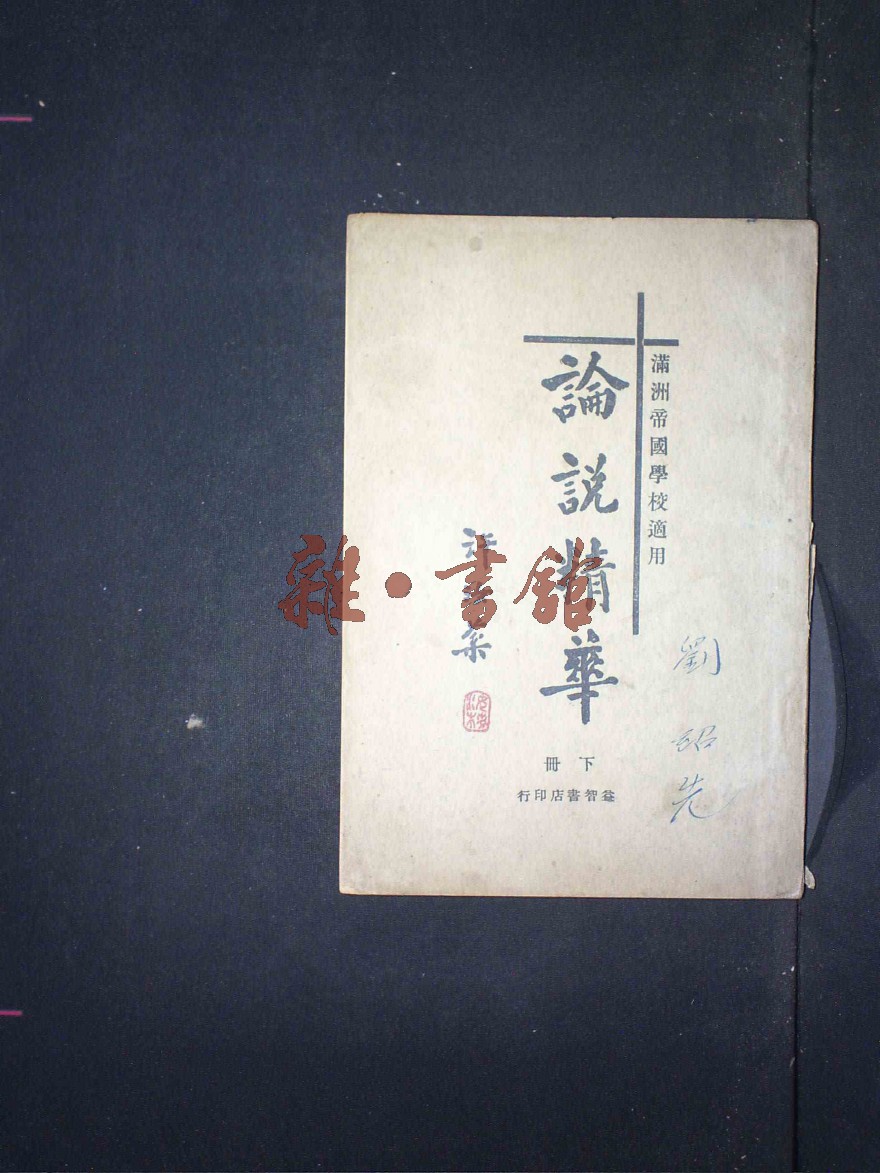 滿洲帝國學校適用
論說精華
下冊
益智書店印行
劉紹先
雜·書館